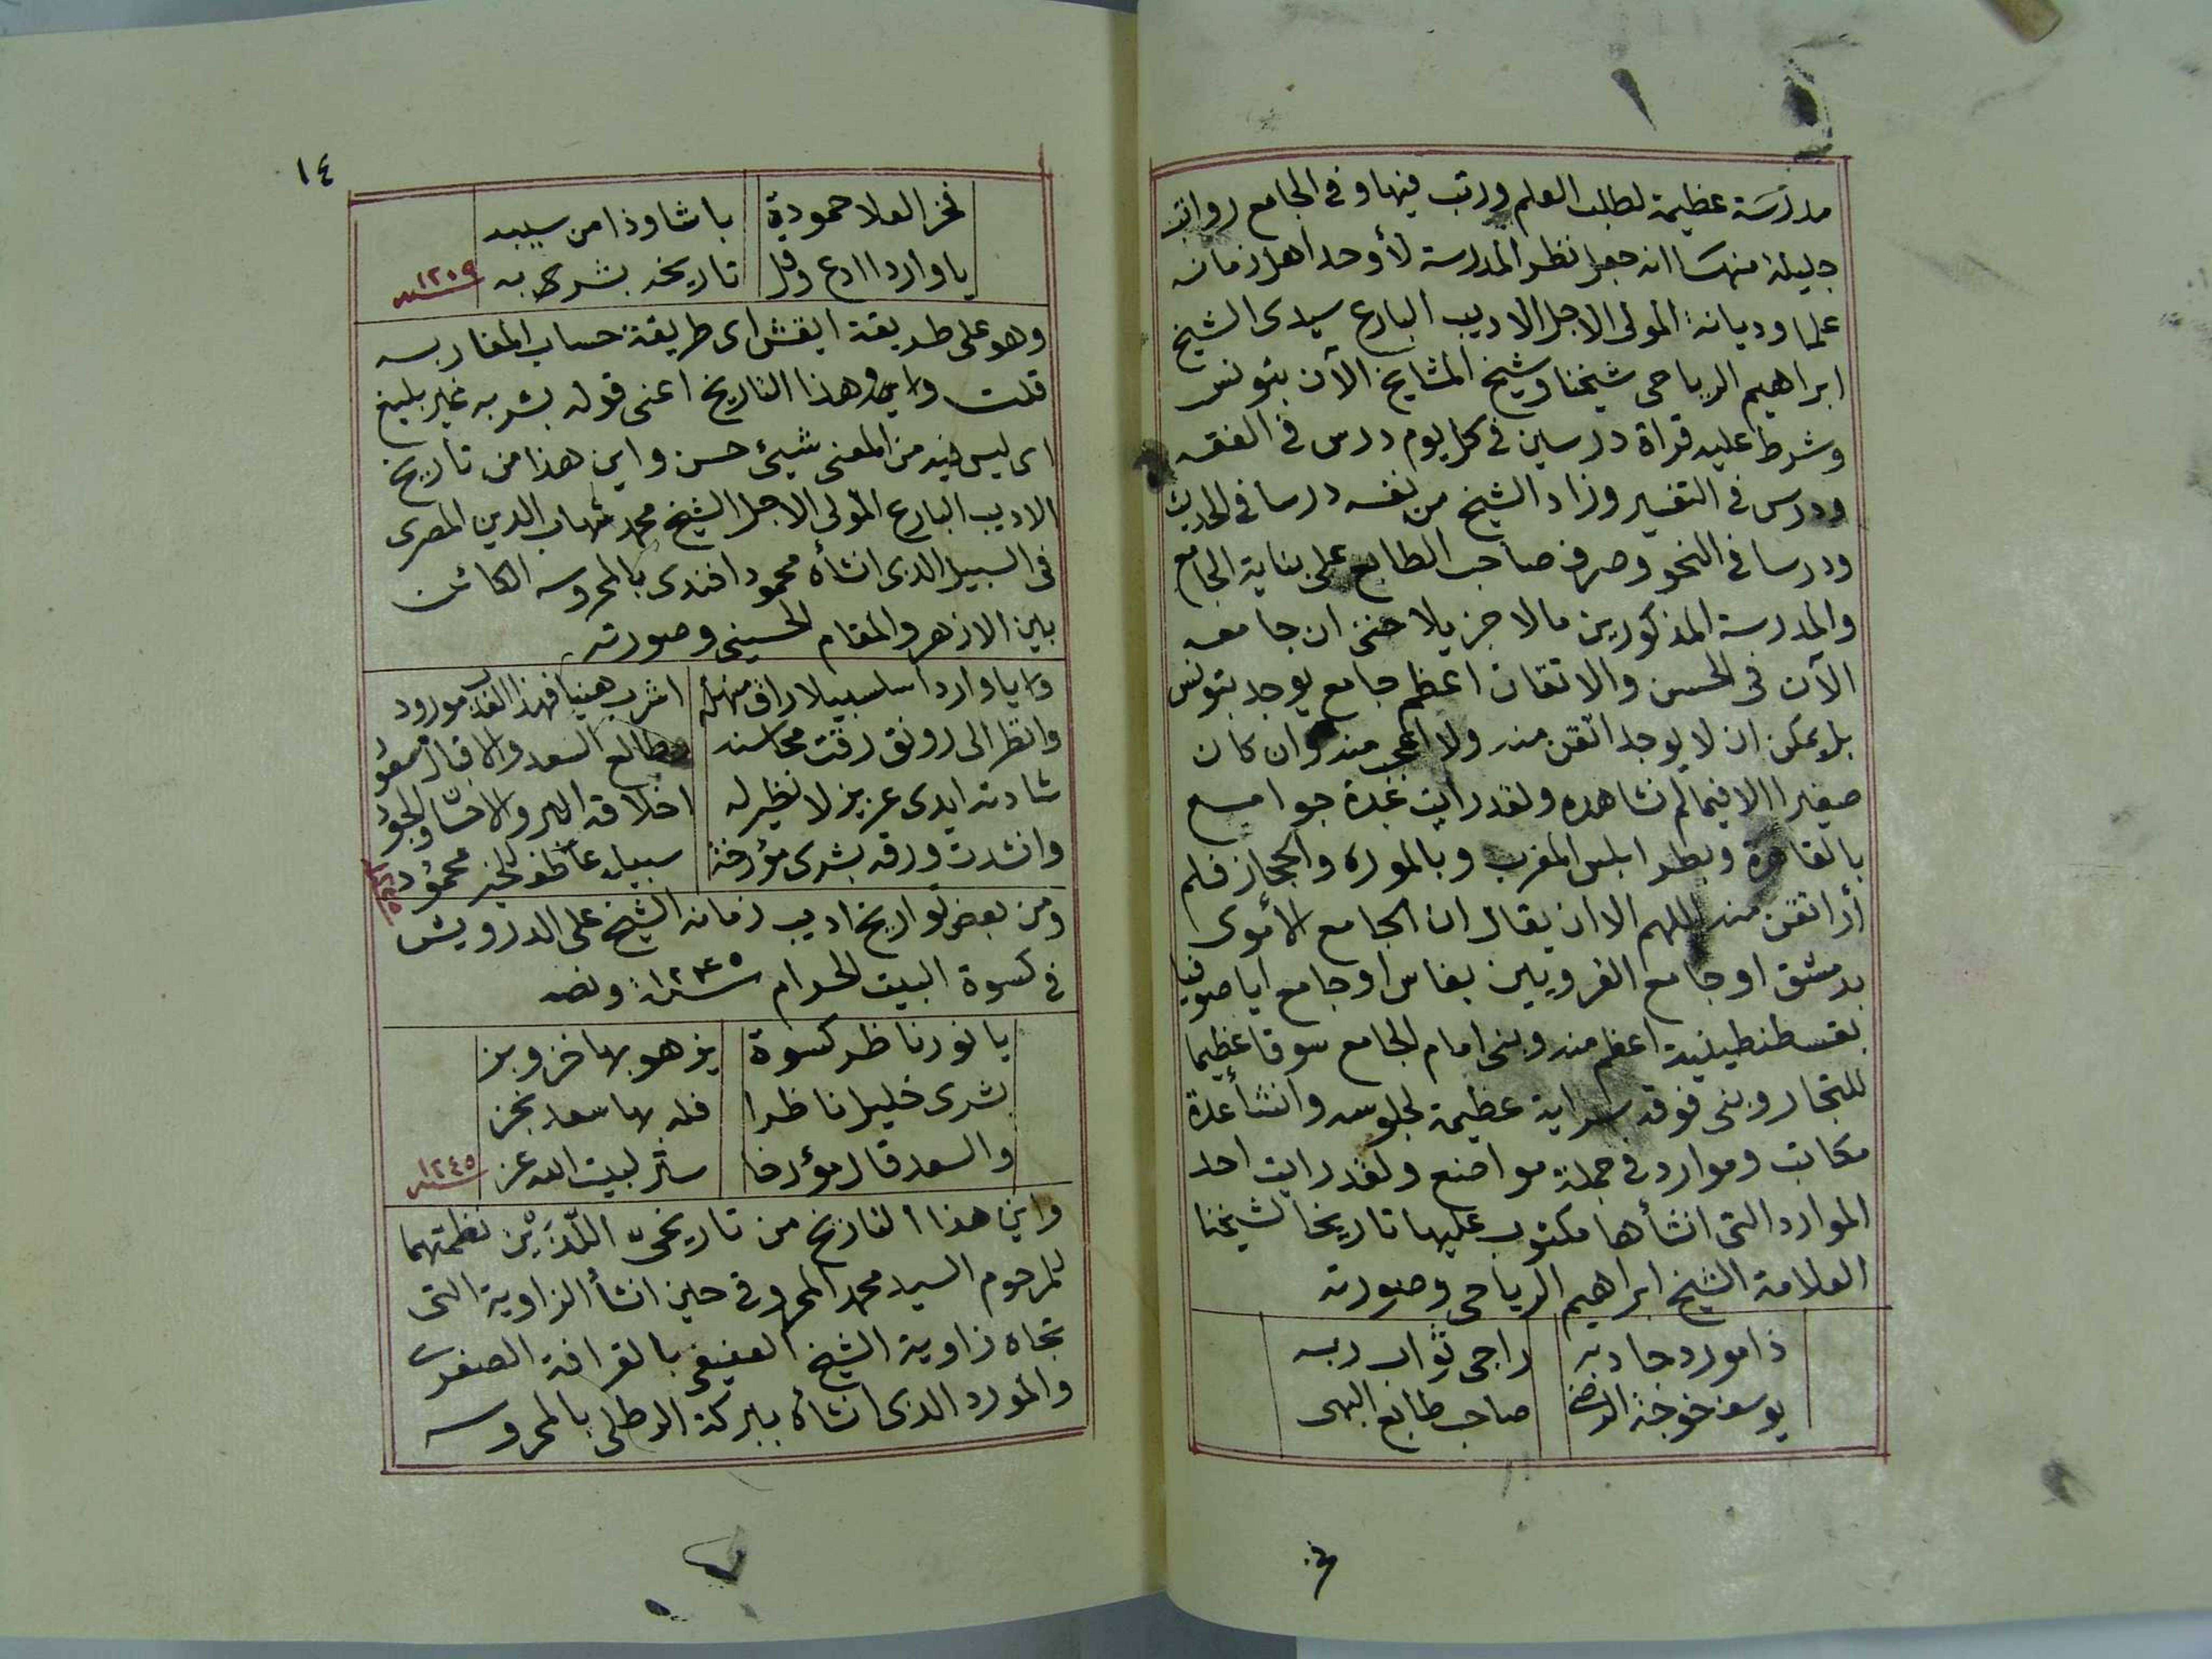 مدرسة عظيمة لطلب العلم ورتب فيها وفى الجامع رواتب
جليلة منها انه جعل نظر المدرسة لأوحد اهل زمانه
علما وديانة المولى الاجل الاديب البارع سيدى الشيخ
ابراهيم الرياحى شيخنا وشيخ المشايخ الآن بتونس
وشرط عليه قراة درسين فى كل يوم درس فى الفقه
ودرس فى التفسير وزاد الشيخ من نفسه درسا فى الحديث
ودرسا فى النحو وصرف صاحب الطابع على بناية الجامع
والمدرسة المذكورين مالا جزيلا حتى ان جامعه
الآن فى الحسن والاتقان اعظم جامع يوجد بتونس
بل يمكن ان لا يوجد اتقن منه ولا اعجب منه وان كان
صغيرا الا فيما لم نشاهده ولقد رايت عدة جوامع
بالقاهرة وبطرابلس المغرب وبالموره والحجاز فلم
أر اتقن منه اللهم الا ان يقال ان الجامع الأموى
بدمشق او جامع القرويين بفاس او جامع اياصوفيا
بقسطنطينية اعظم منه وبنى امام الجامع سوقا عظيما
للتجار وبنى فوقه سراية عظيمة لجلوسه وانشأ عدة
مكاتب وموارد فى جملة مواضع ولقد رايت احد
الموارد التى انشأها مكتوب عليها تاريخا لشيخنا
العلامة الشيخ ابراهيم الرياحى وصورته
ذا مورد جاد به راجى ثواب ربه
يوسف خوجة الرضى صاحب طابع البهى
١٤
فخر العلا حمودة باشا وذا من سيبه
يا واردا ادع وقل تاريخه بشربه سنه ١٢٠٩
وهو على طريقة ايقش اى طريقة حساب المغاربه
قلت وهذا التاريخ اعنى قوله بشربه غير بليغ
اى ليس فيه من المعنى شيئ حسن واين هذا من تاريخ
الاديب البارع المولى الاجل الشيخ محمد شهاب الدين المصرى
فى السبيل الذى انشأه محمود افندى بالمحروسه الكائن
بين الازهر والمقام الحسينى وصورته
يا واردا سلسبيلا راق منهله اشرب هنيا فهذا العذب مورود
وانظر الى رونق رقت محاسنه مطالع السعد والاقبال
شادته ايدى عزيز لا نظير له اخلاقه البر والاحسان والجود
وانشدت ورقه بشرى مؤرخة سبيل للخير محمود ١٢٤٥
ومن بعض تواريخ اديب زمانه الشيخ على الدرويش
فى كسوة البيت الحرام سنة ١٢٤٥ ونصه
يا نور ناظر كسوة يزهو بها خز وبز
بشرى خليل ناظرا فله بها سعد نجز
والسعد قال مؤرخا ستر لبيت الله عز سنه ١٢٤٥
واين هذا التاريخ من تاريخىّ اللّذَيْن نظمتهما
للمرحوم السيد محمد المحروقى حين انشأ الزاوية التى
تجاه زاوية الشيخ العفيفى بالقرافة الصغرى
والمورد الذى انشأه ببركة الرطلى بالمحروسه